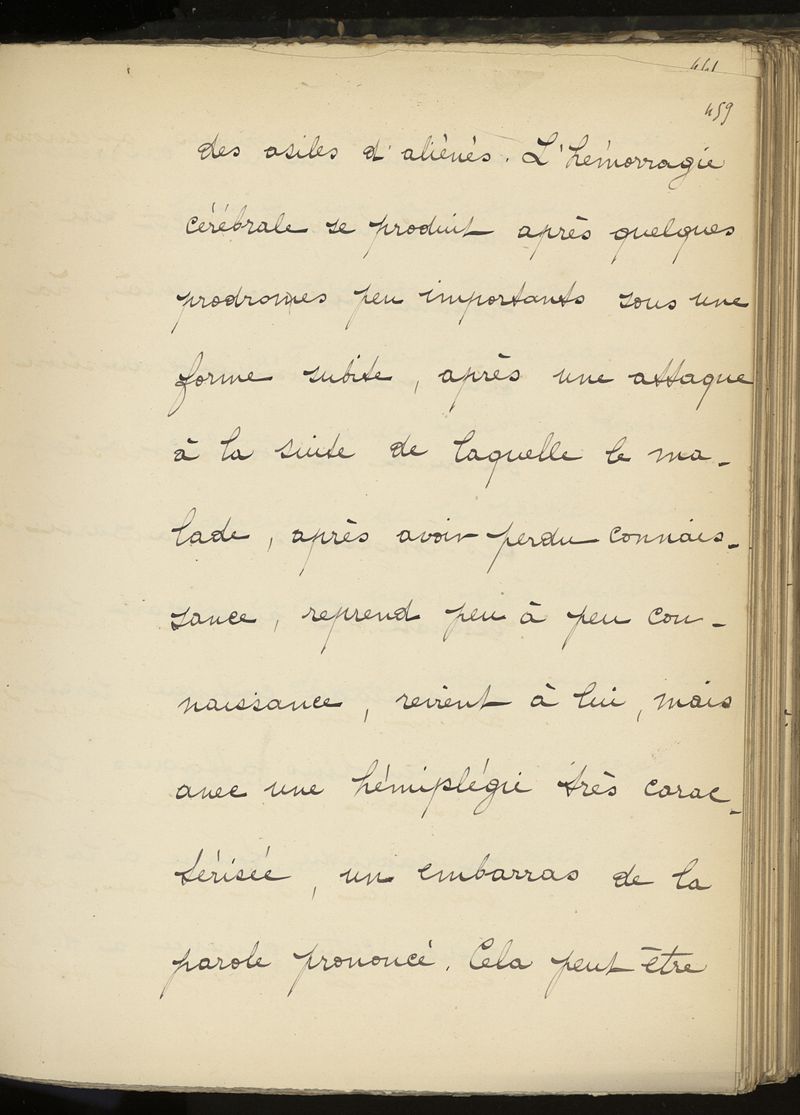 441
459
des asiles d'aliénés. L'hémorragie
cérébrale se produit après quelques
prodromes peu importants sous une
forme subite, après une attaque
à la suite de laquelle le ma-
lade, après avoir perdu connais-
sance, reprend peu à peu con-
naissance, revient à lui, mais
avec une hémiplégie très carac-
térisée, un embarras de la
parole prononcé. Cela peut être